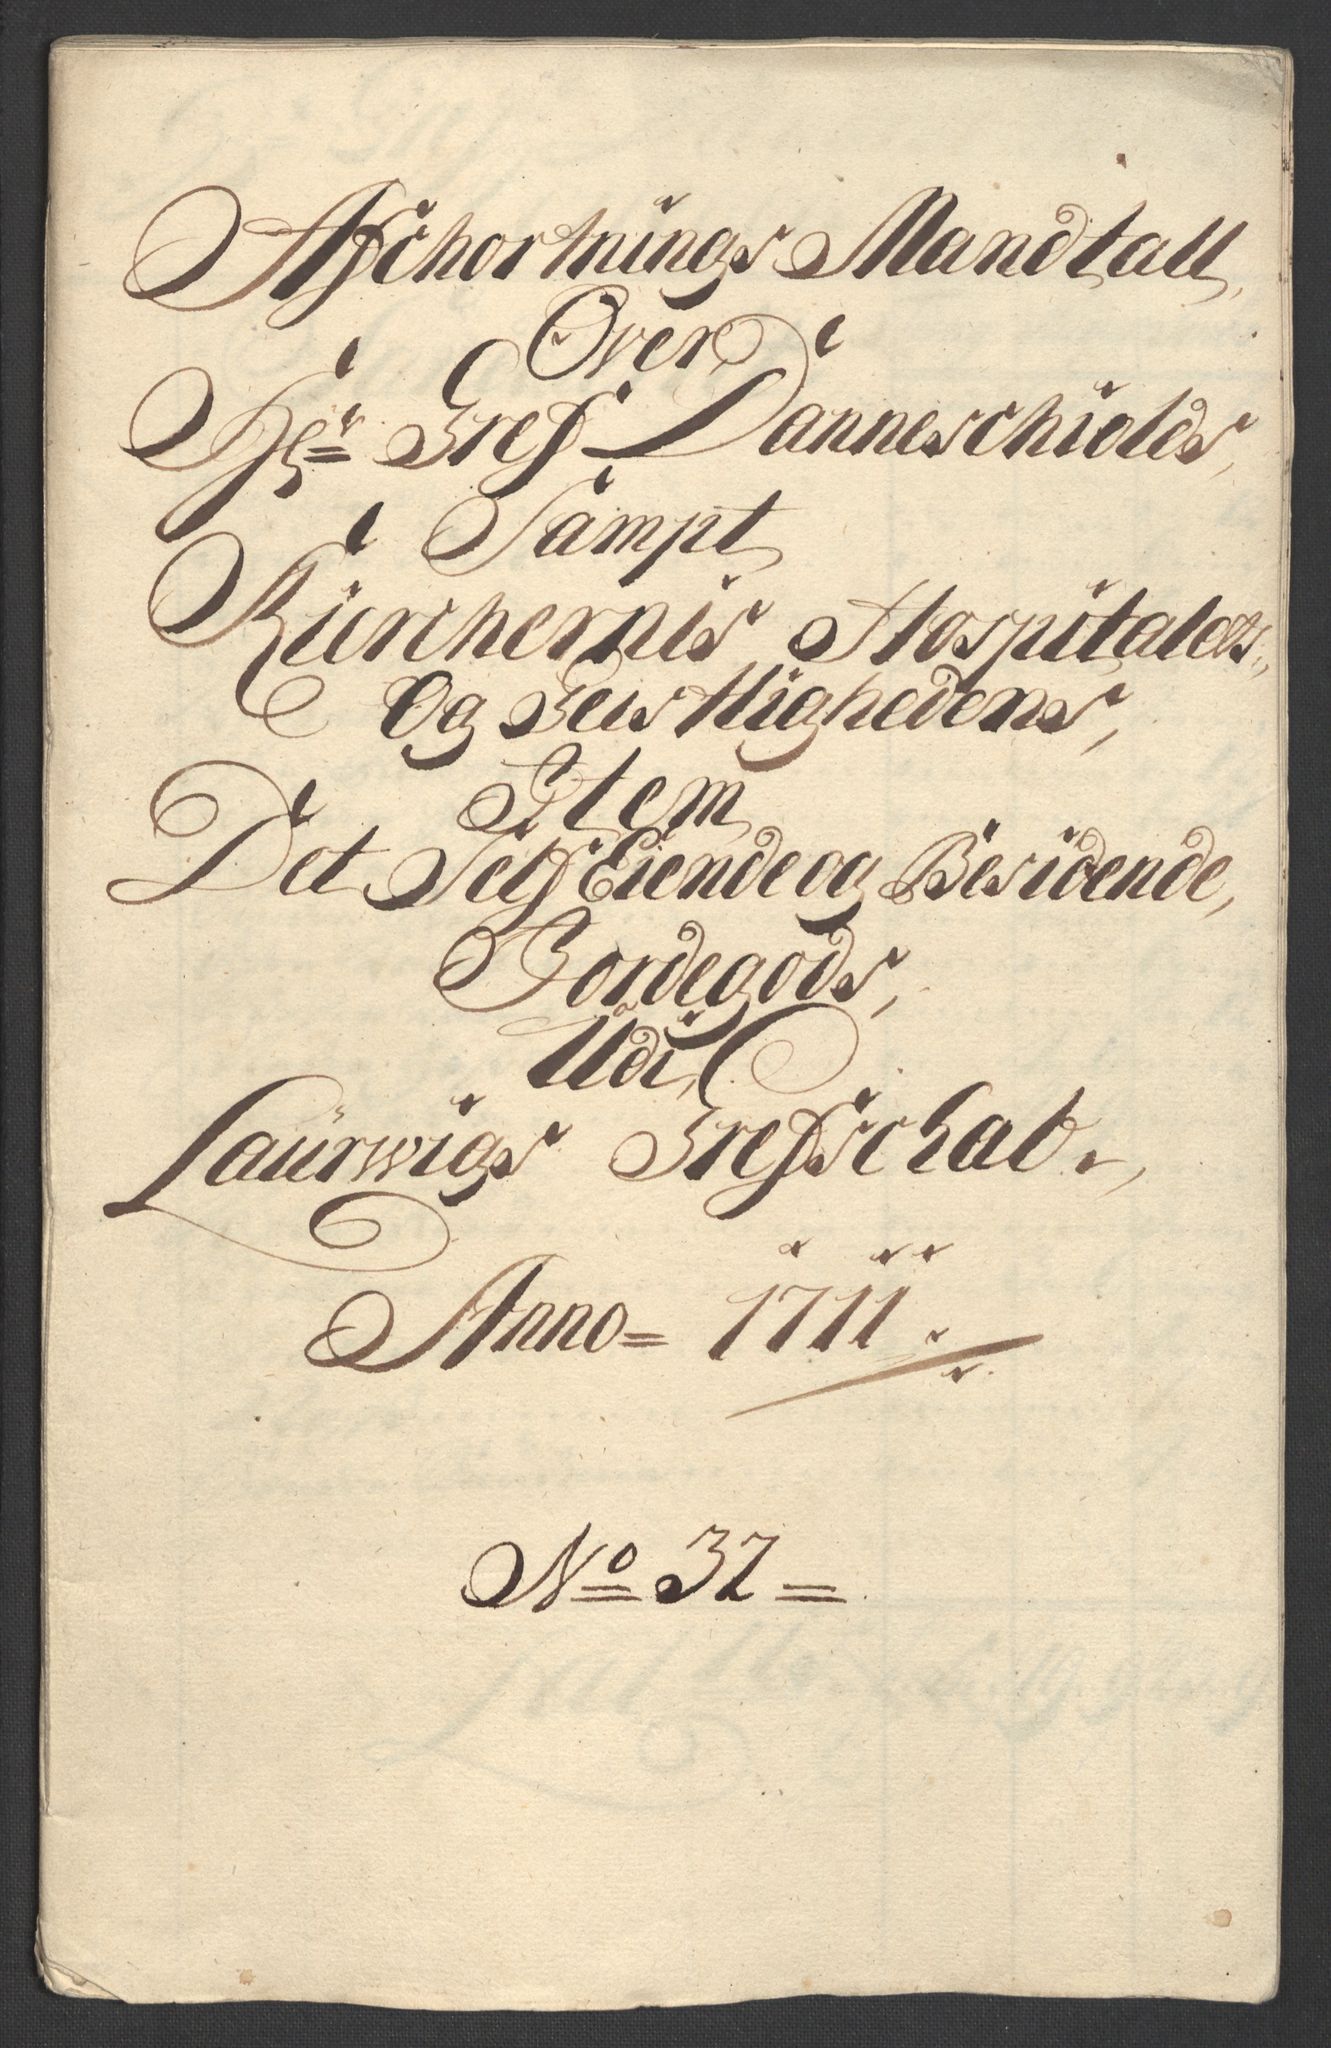 Afschortnings Mandtall,
Over
Hr: Gref Danneschiolds,
Sampt
Kürchernis Hospitalets,
Og Geistlighedens,
Item
Det Self Eiende og Besidende,
Jordegods,
Udi,
Laürwigs Grefschab.,
Anno = 1711.
No 37 =